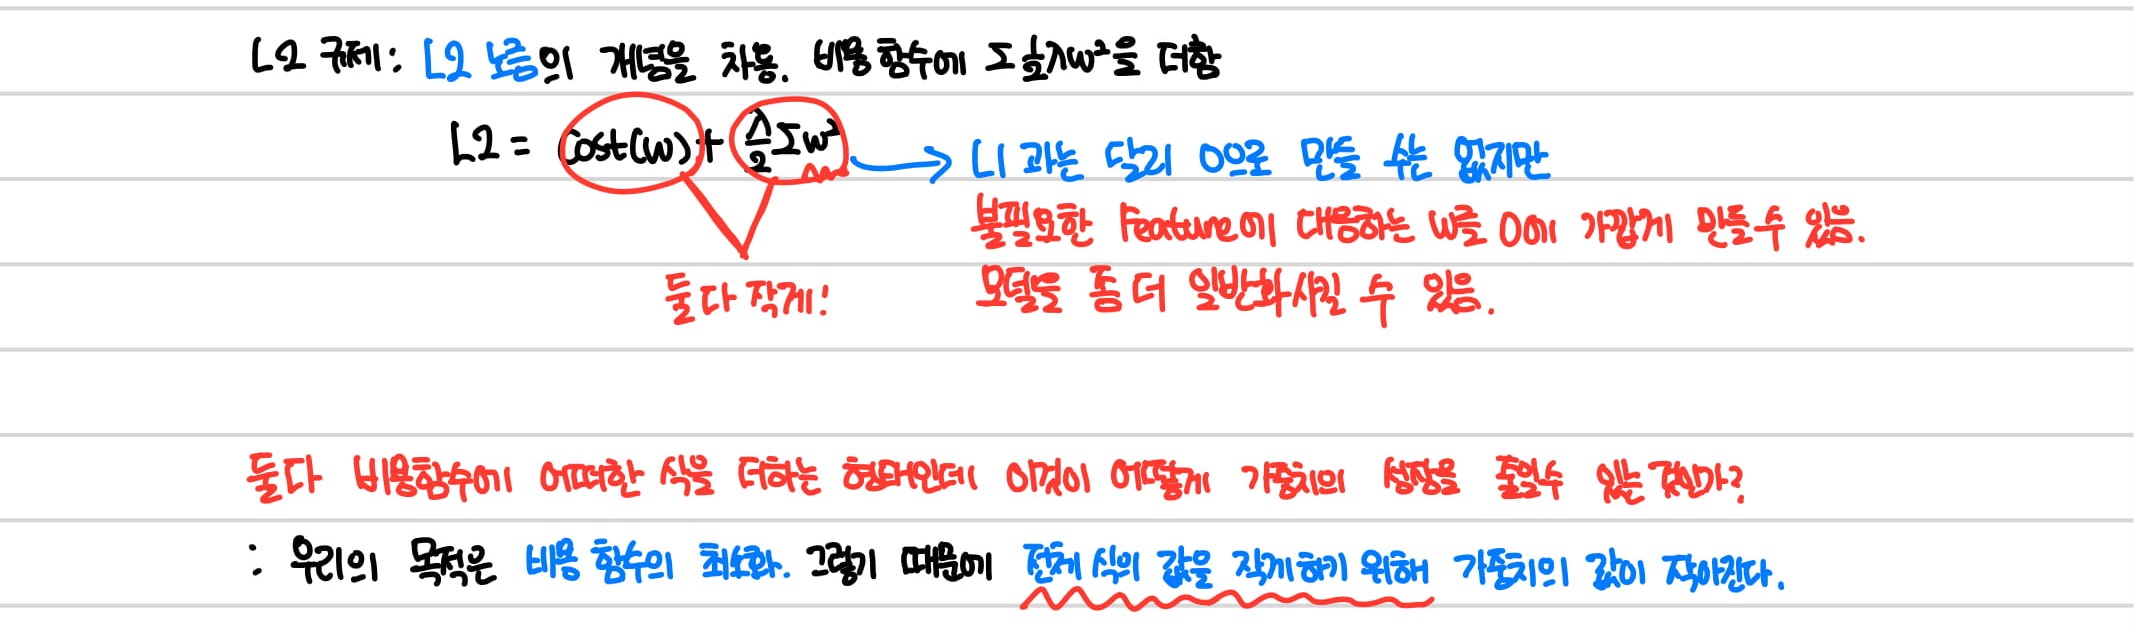 L2 규제: L2 노름의 개념을 차용. 비용 함수에 Σ½λw²을 더함
L2 = Cost(w) + λ/2 Σw² → L1 과는 달리 0으로 만들 수는 없지만
불필요한 Feature에 대응하는 w를 0에 가깝게 만들수 있음.
둘다 작게! 모델을 좀 더 일반화시킬 수 있음.
둘다 비용함수에 어떠한 식을 더하는 형태인데 이것이 어떻게 가중치의 성장을 줄일수 있는 것인가?
: 우리의 목적은 비용 함수의 최소화. 그렇기 때문에 전체 식의 값을 작게하기 위해 가중치의 값이 작아진다.